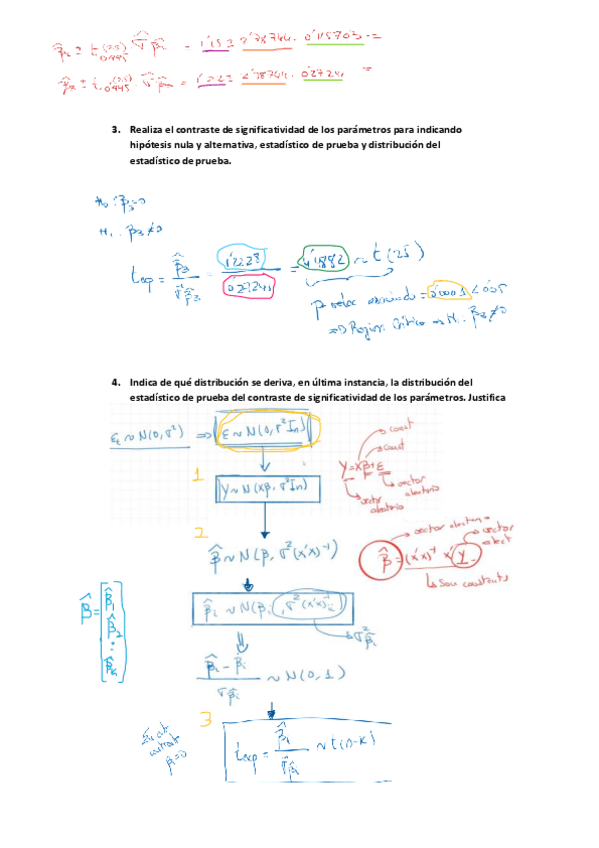 β̂₂ ± t₀.₉₉₅⁽²⁵⁾ σ̂β̂₂ = 1'15 ± 2'78744 · 0'115703 =
β̂₃ ± t₀.₉₉₅⁽²⁵⁾ · σ̂β̂₃ = ± 2'78744 · 0'27241 =
3. Realiza el contraste de significatividad de los parámetros para indicando
hipótesis nula y alternativa, estadístico de prueba y distribución del
estadístico de prueba.
H₀: β₃=0
H₁: β₃≠0
t exp = β̂₃ / σ̂β̂₃ = / 0'27241 = ~ t(25)
p valor asociado = 0'0003 < 0'05
=> Region Crítica => H₁: β₃≠0
4. Indica de qué distribución se deriva, en última instancia, la distribución del
estadístico de prueba del contraste de significatividad de los parámetros. Justifica
εt ~ N(0, σ²) => ε ~ N(0, σ² In)
const
const
1
Y = Xβ + ε
Y ~ N(Xβ, σ² In)
vector aleatorio
vector aleatorio
2
β̂ ~ N(β, σ²(X'X)⁻¹)
vector aleatorio
vector aleat
β̂ = (X'X)⁻¹ X' Y
Son constants
β̂ = [β̂₁ β̂₂ : β̂k]
β̂i ~ N(βi, σ²(X'X)⁻¹ii)
σ²β̂i
β̂i - βi / σβ̂i ~ N(0, 1)
3
β=0
t exp = β̂i / σ̂β̂i ~ t(n-k)